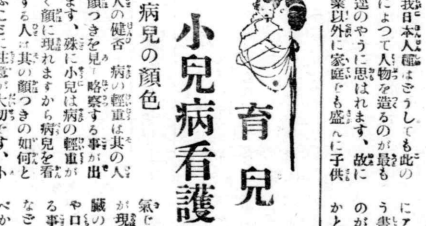 にア
う書
のが
かと
我日本人種はどうしても此の
によつて人物を造るのが最も
達のやうに思はれます、故に
業以外に家庭でも盛んに子供
育兒
小兒病看護
病兒の顏色
人の健否 病の輕重は其の人
顏つきを見て略察する事が出
ます、殊に小兒は病の輕重が
く顏に現れますから病兒を看
する人は其の顏つきの如何と
氣じ
が現
臟の
や口
る事
など
べか